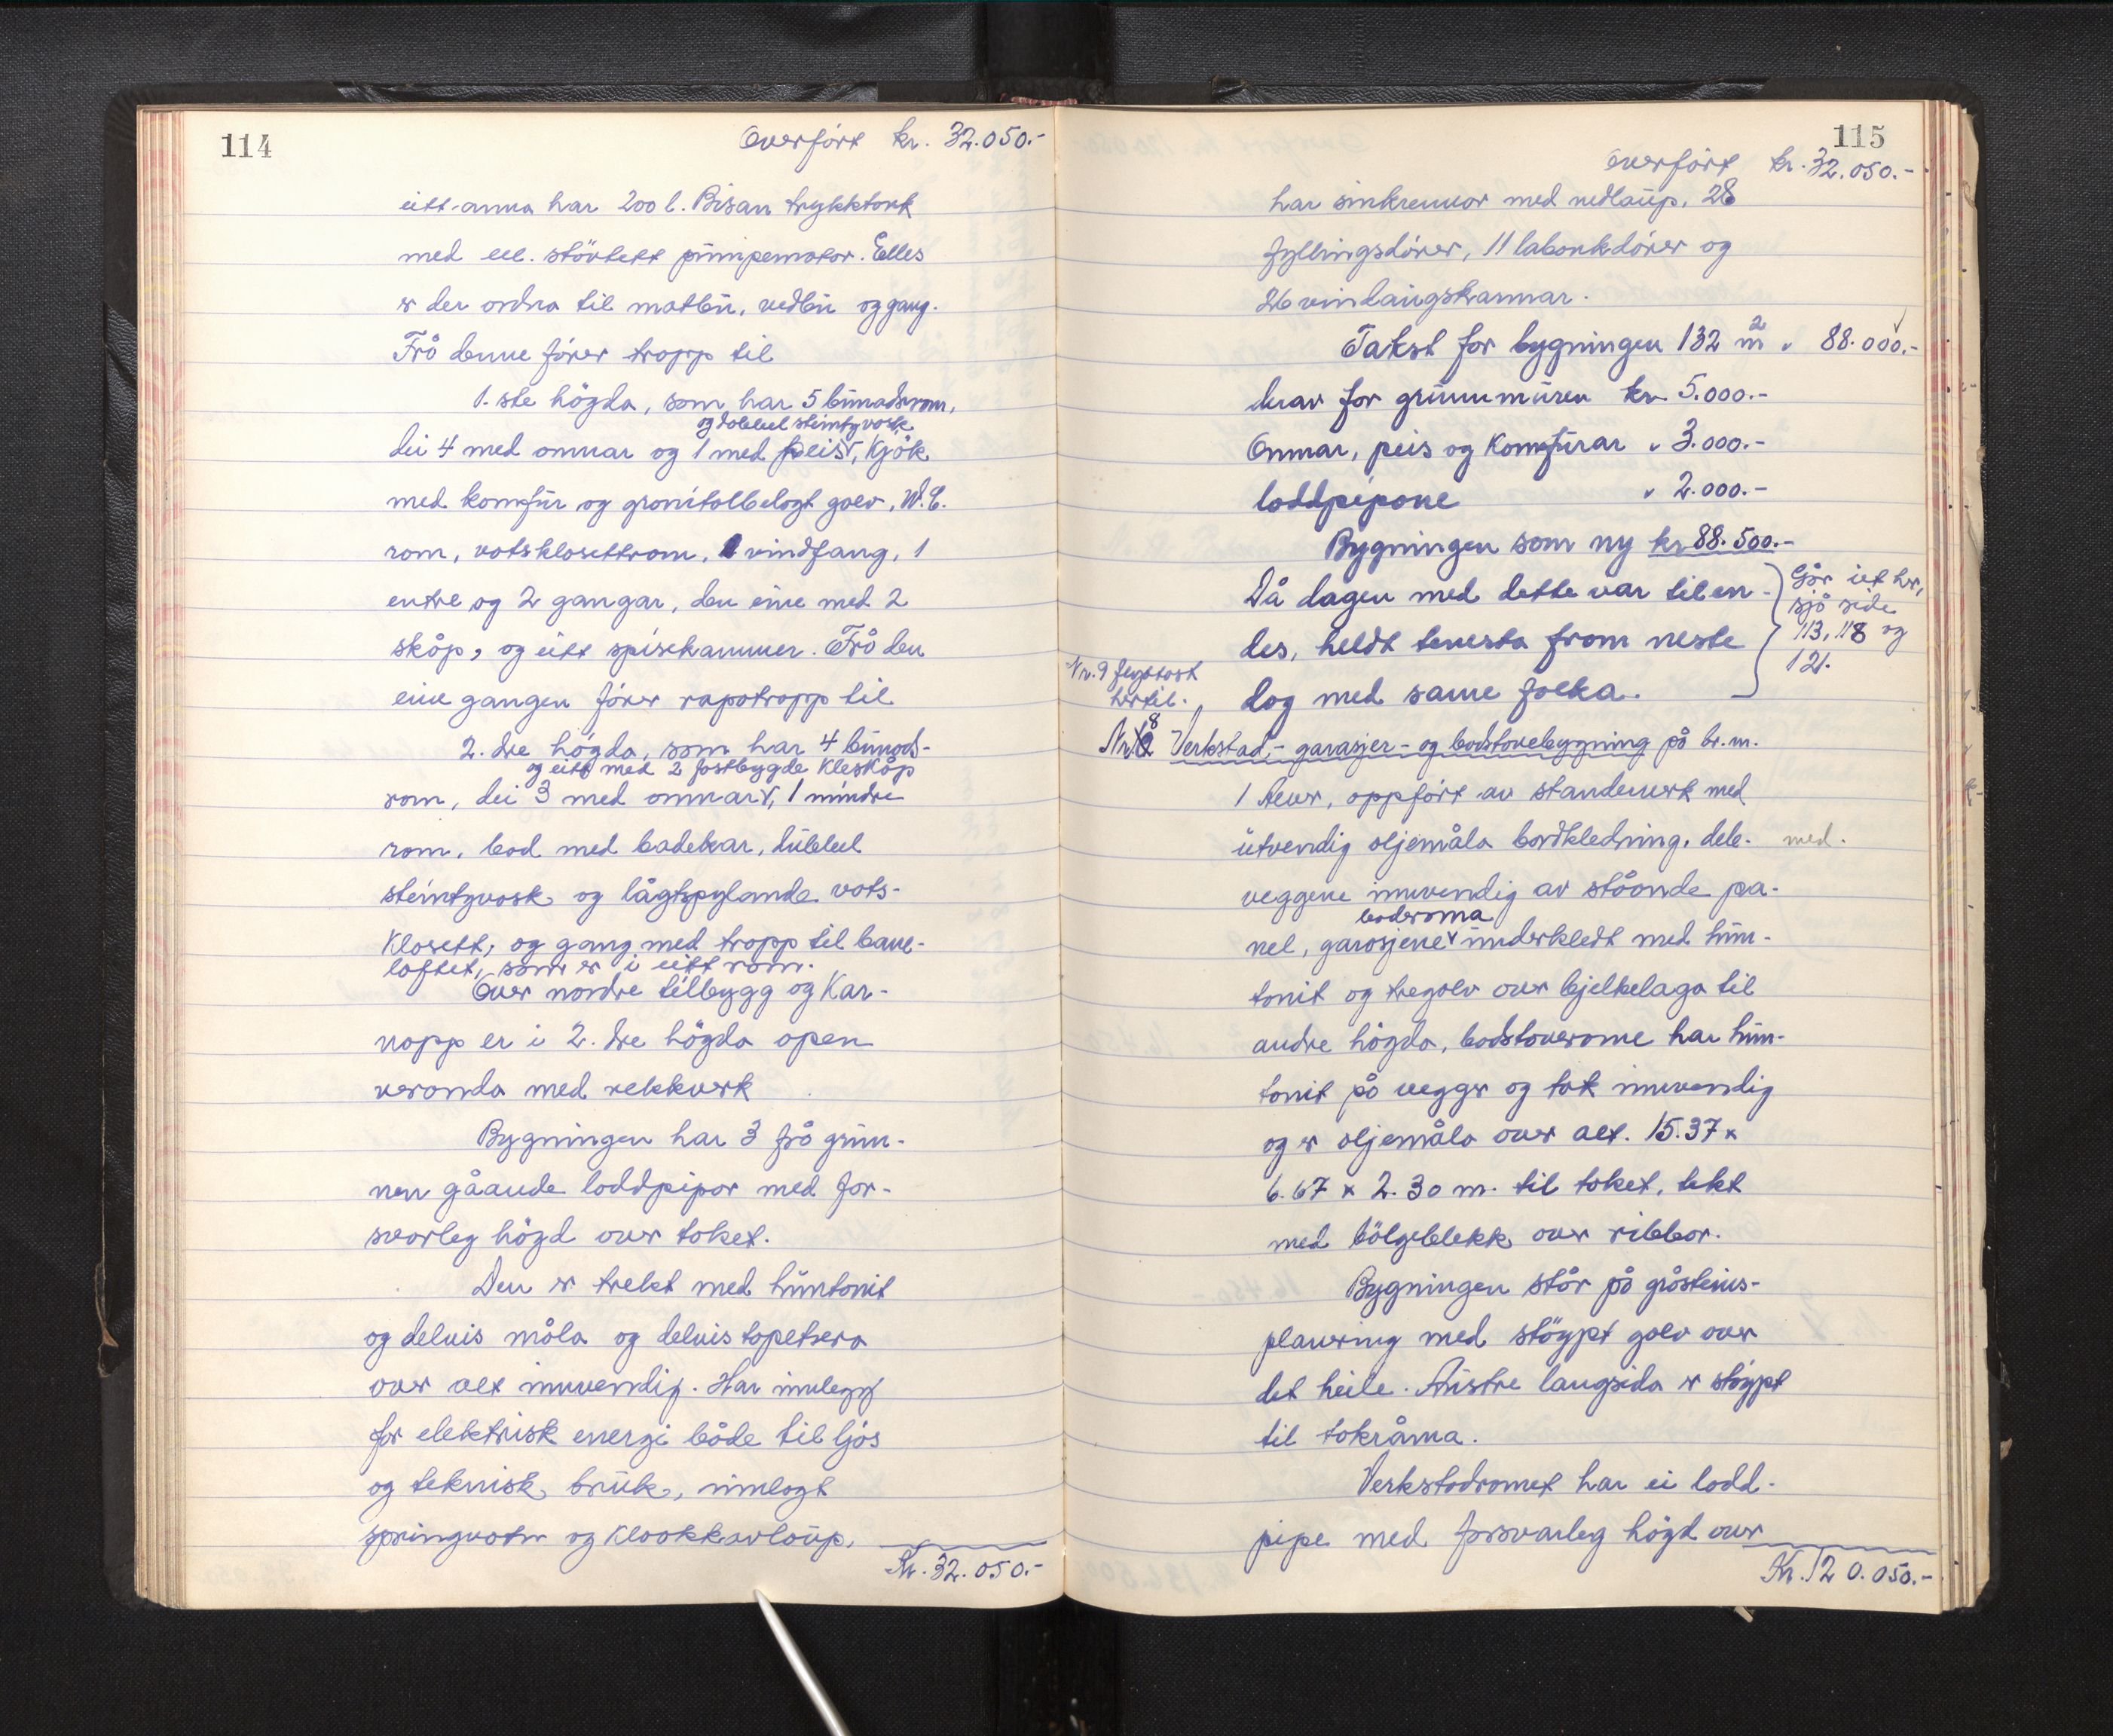 114
Overført kr. 32.050.-
eitt anna har 200 l. Bisan trykktank
med el. støvtett pumpemotor. Elles
er der ordna til matbu, vedbu og gang.
Frå denne fører trapp til
1. ste høgda, som har 5 bunadsrom,
og dobbel steintyvask
dei 4 med omnar og 1 med peis, kjøk
med komfur og granitolbelagt golv, W.C.
rom, vatsklosettrom, vindfang, 1
entre og 2 gangar, den eine med 2
skåp, og eitt spisekammer. Frå den
eine gangen fører rapotrapp til
2. dre høgda, som har 4 bunads-
og eitt med 2 fastbygde kleskåp
rom, dei 3 med omnar, 1 mindre
rom, bad med badekar, dubbel
steintyvask og lågtspylande vats-
klosett, og gang med trapp til bane-
loftet, som er i eitt rom.
Over nordre tilbygg og kar-
napp er i 2. dre høgda open
veranda med rekkverk
Bygningen har 3 frå grun-
nen gåande loddpipor med for-
svarleg høgd over taket.
Den er trekt med huntonit
og delvis måla og delvis tapetsera
over alt innvendig. Har innlegg
for elektrisk energi både til ljos
og teknisk bruk, innlagt
springvatn og kloakkavlaup.
Kr. 32.050.-
115
Overført kr. 32.050.-
har sinkrennor med nedlaup, 28
fyllingsdører, 11 labankdører og
26 vindaugskarmar.
Takst for bygningen 132 m2 " 88.000.-
derav for grunnmuren kr 5.000.-
Omnar, peis og komfurar " 3.000.-
loddpipone " 2.000.-
Bygningen som ny kr 88.500.-
Då dagen med dette var tilen-
des, heldt tenesta fram neste
dag med same folka.
Går ut her,
sjå side
113, 118 og
121.
Nr. 9
hertil.
Nr. 8 Verkstad,- garasjer- og badstovebygning på br. nr.
1 Neur, oppført av standerverk med
utvendig oljemåla bordkledning, dele- med.
veggene innvendig av ståande pa-
baderoma
nel, garasjene underkledt med hun-
tonit og tregolv over bjelkelaga til
andre høgda, badstoverome har hun-
tonit på vegger og tak innvendig
og er oljemåla over alt. 15.37 x
6.67 x 2.30 m. til taket, tekt
med bölgeblekk over ribbor.
Bygningen står på gråsteins-
planering med støypt golv over
det heile. Austre langsida er støypt
til takråma.
Verkstadromet har ei lodd-
pipe med forsvarleg høgd over
Kr. 120.050.-